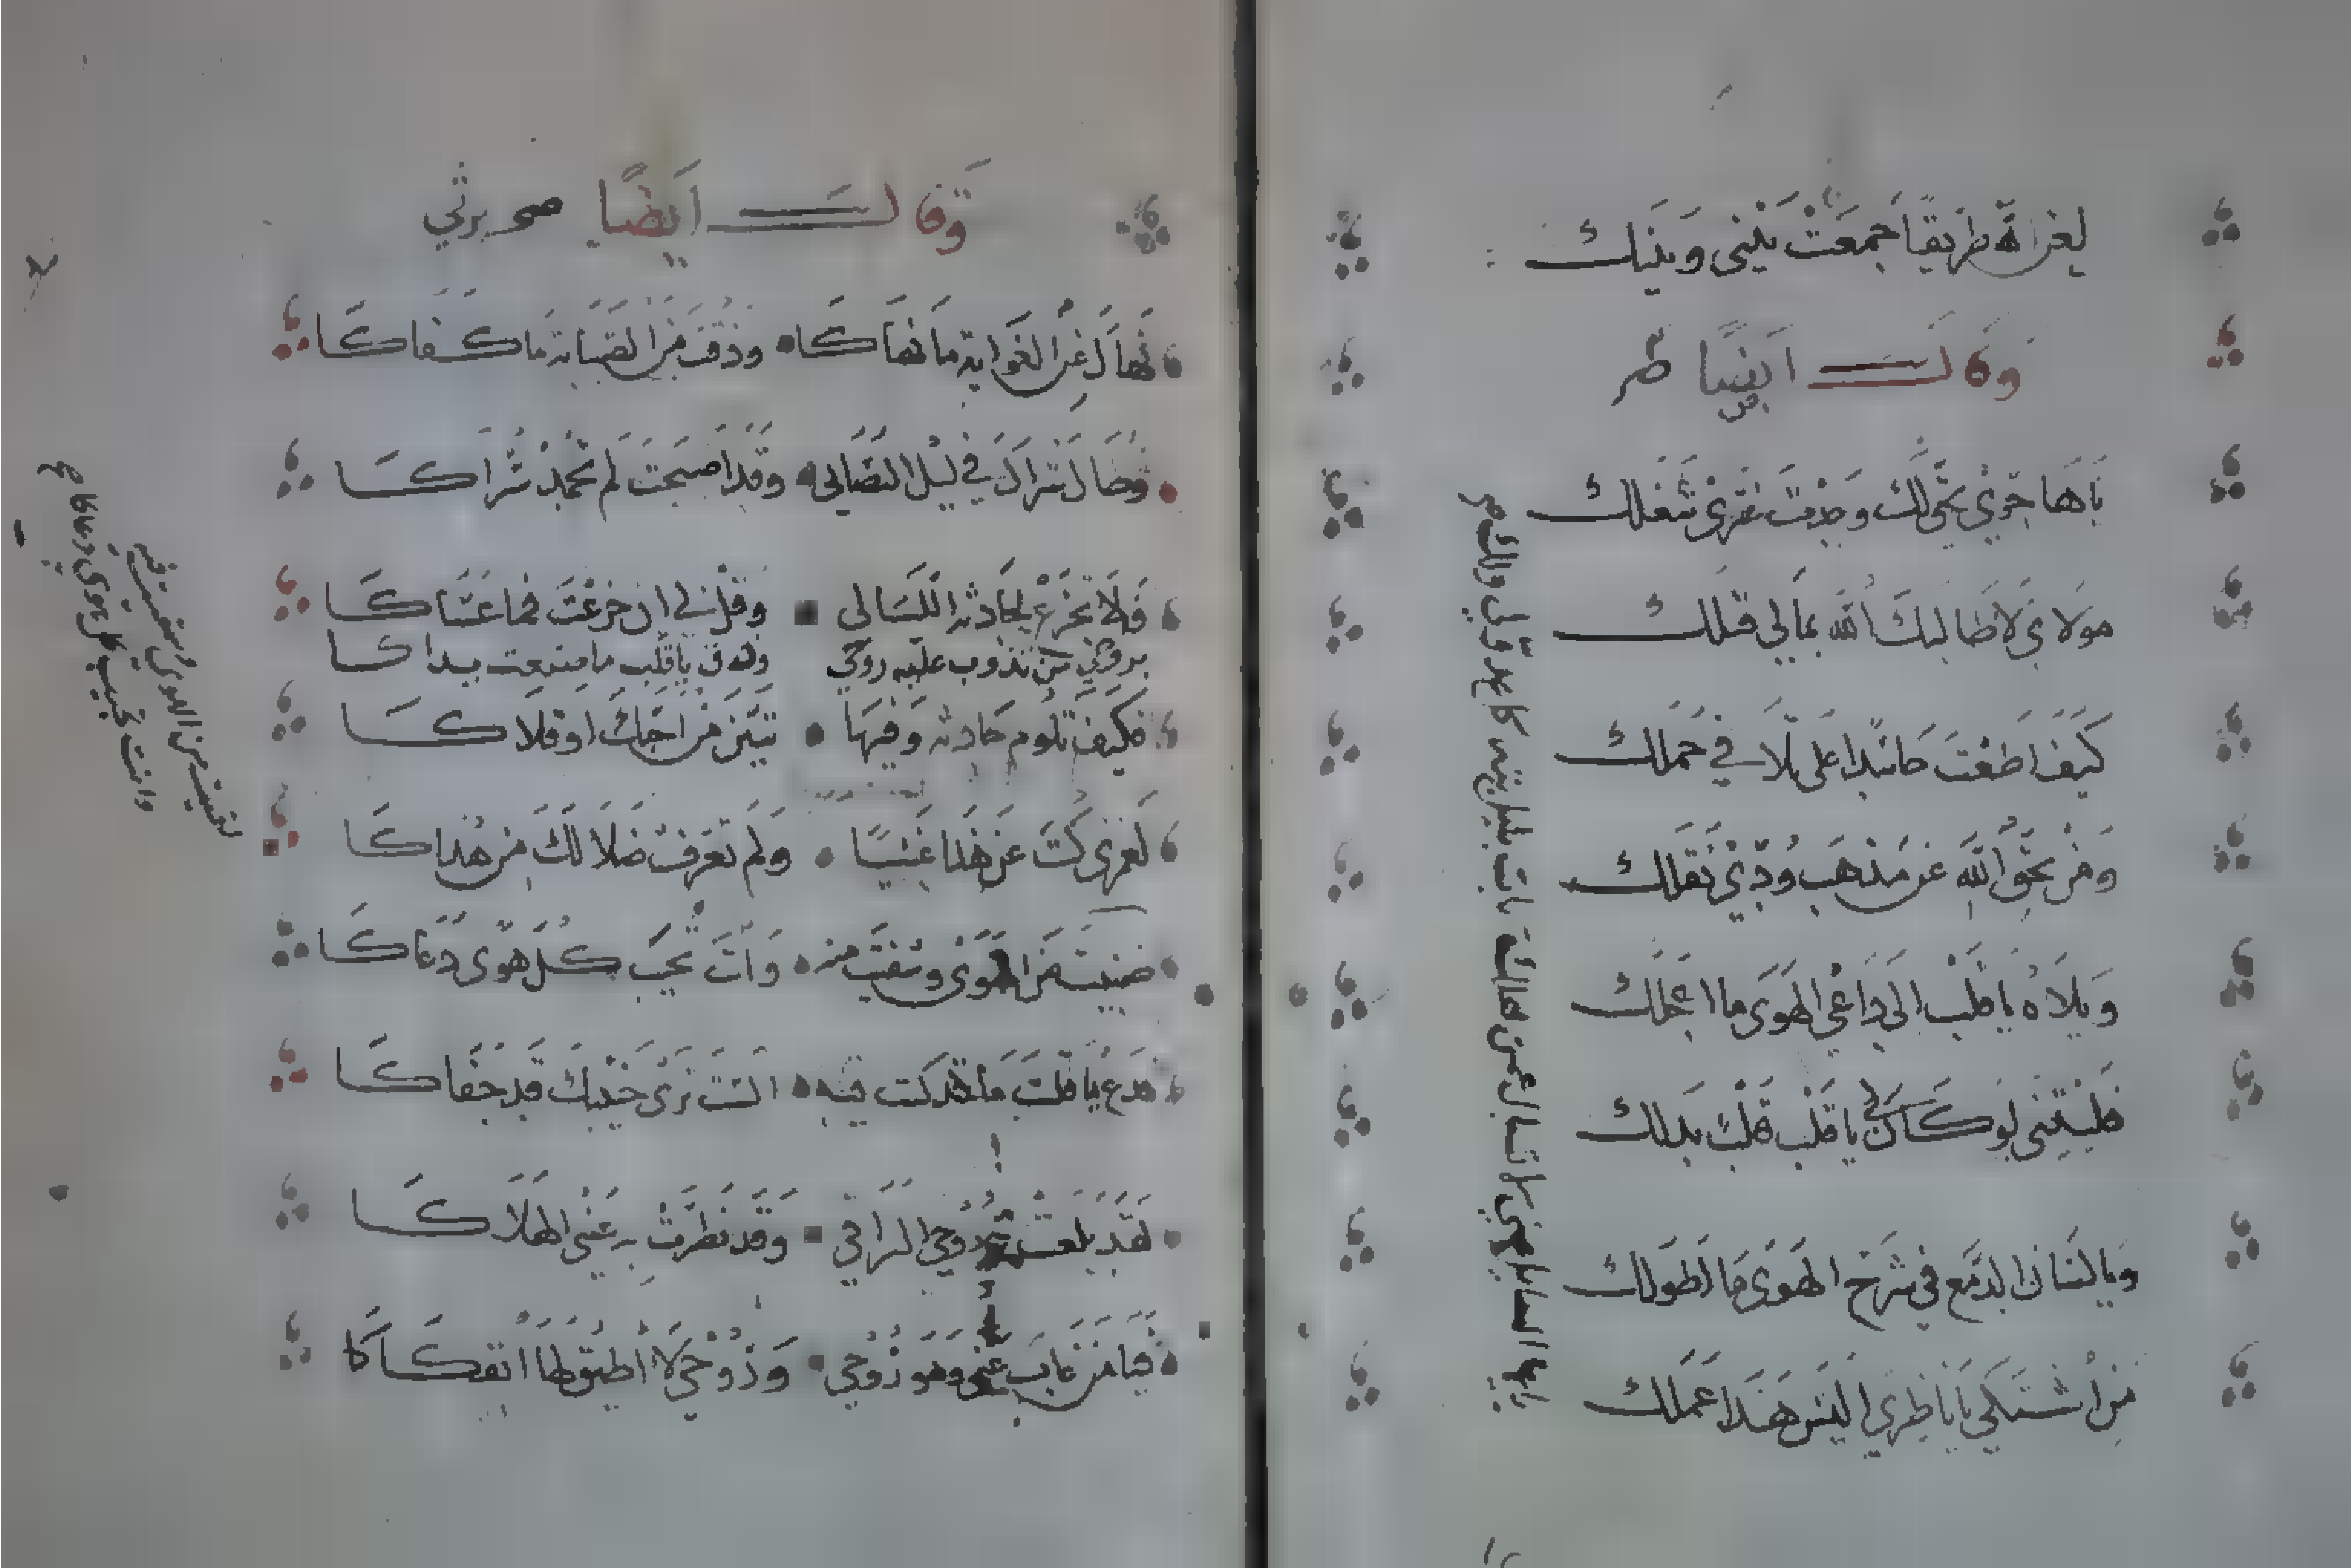 لعن الله طريقًا جمعت بيني وبينك
وقال ايضًا
ياهاجري بحق لك وجدت غيري شغلك
مولاي لا طالبك الله بما لي قبلك
كيف اطعت حاسدا علي لا في حملك
ومن بحق الله عن مذهب ودي نقلك
ويلاه يا قلب الى داعي الهوى ما اعجلك
فليتني لو كان لي يا قلب قلب بدلك
ويا لسان الدمع في شرح الهوى ما اطولك
من اشتكي يا ناظري اليس هذا عملك
وقال ايضًا
نهاك عن الغواية ما نهاكا وذقت من الصبابة ما كفاكا
وطال سراك في ليل التصابي وقد اصبحت لم تحمد سراكا
فلا تجزع لحادثة الليالي وقل لي ان جزعت فما عساكا
بروحي من تذوب عليه روحي وذق يا قلب ما صنعت يداكا
فكيف تلوم حادثة وفيها تبين من احبك او قلاكا
لعمري كنت عن هذا غنيا ولم تعرف ضلالك من هداكا
ضنيت من الهوى وشقيت منه وانت تجيب كل هوى دعاكا
فدع يا قلب ما قد كنت فيه الست ترى حبيبك قد جفاكا
لقد بلغت به روحي التراقي وقد نظرت به عيني الهلاكا
فيا من غاب عني وهو روحي وروحي لا اطيق لها انفكاكا